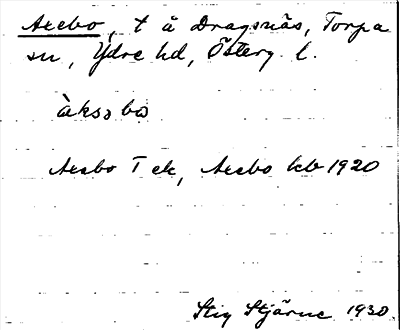 Axebo, t å Dragsnäs, Torpa
sn, Ydre hd, Österg. l.
àksəbo
Axebo T ek, Axebo kb 1920
Stig Stjärne 1930